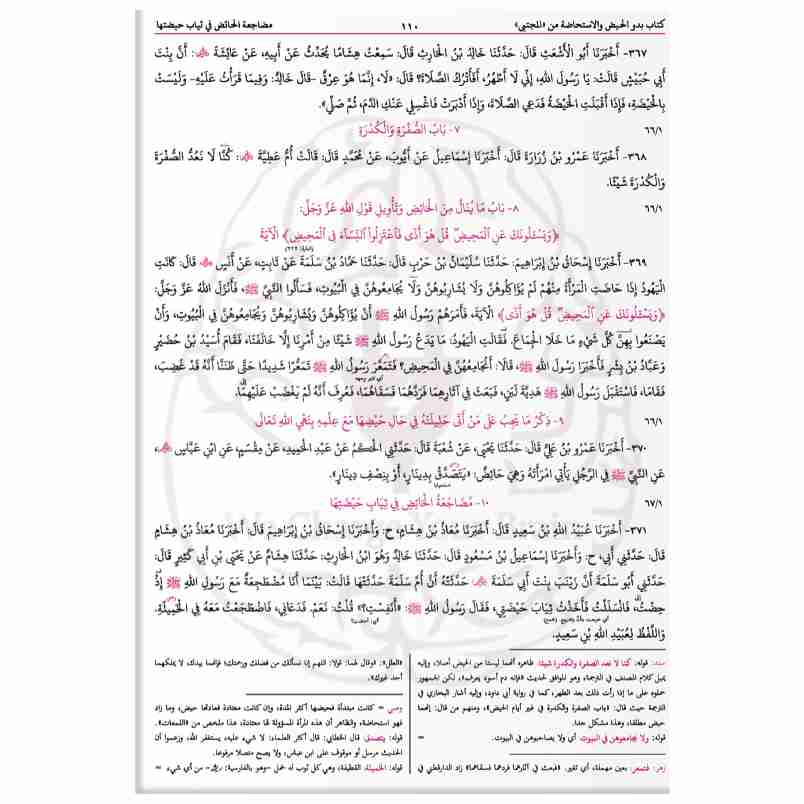 كتاب بدو الحيض والاستحاضة من «المجتبى» ١١٠ مضاجعة الحائض في ثياب حيضتها
٣٦٧- أَخْبَرَنَا أَبُو الْأَشْعَثِ قَالَ: حَدَّثَنَا خَالِدُ بْنُ الْحَارِثِ قَالَ: سَمِعْتُ هِشَامًا يُحَدِّثُ عَنْ أَبِيهِ، عَنْ عَائِشَةَ ﷞: أَنَّ بِنْتَ
أَبِي حُبَيْشٍ قَالَتْ: يَا رَسُولَ اللهِ، إِنِّي لَا أَطْهُرُ، أَفَأَتْرُكُ الصَّلَاةَ؟ قَالَ: «لَا، إِنَّمَا هُوَ عِرْقٌ -قَالَ خَالِدٌ: وَفِيمَا قَرَأْتُ عَلَيْهِ- وَلَيْسَتْ
بِالْحَيْضَةِ، فَإِذَا أَقْبَلَتِ الْحَيْضَةُ فَدَعِي الصَّلَاةَ، وَإِذَا أَدْبَرَتْ فَاغْسِلِي عَنْكِ الدَّمَ، ثُمَّ صَلِّي».
٦٦/١ ٧- بَابُ الصُّفْرَةِ وَالْكُدْرَةِ
٣٦٨- أَخْبَرَنَا عَمْرُو بْنُ زُرَارَةَ قَالَ: أَخْبَرَنَا إِسْمَاعِيلُ عَنْ أَيُّوبَ، عَنْ مُحَمَّدٍ قَالَ: قَالَتْ أُمُّ عَطِيَّةَ ﷞: كُنَّا لَا نَعُدُّ الصُّفْرَةَ
وَالْكُدْرَةَ شَيْئًا.
٦٦/١ ٨- بَابُ مَا يُنَالُ مِنَ الْحَائِضِ وَتَأْوِيلِ قَوْلِ اللهِ عَزَّ وَجَلَّ:
﴿وَيَسْـَٔلُونَكَ عَنِ ٱلْمَحِيضِ ۖ قُلْ هُوَ أَذًى فَٱعْتَزِلُوا۟ ٱلنِّسَآءَ فِى ٱلْمَحِيضِ﴾ الْآيَةَ
(البقرة: ٢٢٢)
٣٦٩- أَخْبَرَنَا إِسْحَاقُ بْنُ إِبْرَاهِيمَ: حَدَّثَنَا سُلَيْمَانُ بْنُ حَرْبٍ قَالَ: حَدَّثَنَا حَمَّادُ بْنُ سَلَمَةَ عَنْ ثَابِتٍ، عَنْ أَنَسٍ ﷜ قَالَ: كَانَتِ
الْيَهُودُ إِذَا حَاضَتِ الْمَرْأَةُ مِنْهُمْ لَمْ يُؤَاكِلُوهُنَّ وَلَا يُشَارِبُوهُنَّ وَلَا يُجَامِعُوهُنَّ فِي الْبُيُوتِ، فَسَأَلُوا النَّبِيَّ ﷺ، فَأَنْزَلَ اللهُ عَزَّ وَجَلَّ:
﴿وَيَسْـَٔلُونَكَ عَنِ ٱلْمَحِيضِ ۖ قُلْ هُوَ أَذًى﴾ الْآيَةَ، فَأَمَرَهُمْ رَسُولُ اللهِ ﷺ أَنْ يُؤَاكِلُوهُنَّ وَيُشَارِبُوهُنَّ وَيُجَامِعُوهُنَّ فِي الْبُيُوتِ، وَأَنْ
يَصْنَعُوا بِهِنَّ كُلَّ شَيْءٍ مَا خَلَا الْجِمَاعَ. فَقَالَتِ الْيَهُودُ: مَا يَدَعُ رَسُولُ اللهِ ﷺ شَيْئًا مِنْ أَمْرِنَا إِلَّا خَالَفَنَا، فَقَامَ أُسَيْدُ بْنُ حُضَيْرٍ
وَعَبَّادُ بْنُ بِشْرٍ فَأَخْبَرَا رَسُولَ اللهِ ﷺ، قَالَا: أَنُجَامِعُهُنَّ فِي الْمَحِيضِ؟ فَتَمَعَّرَ رَسُولُ اللهِ ﷺ تَمَعُّرًا شَدِيدًا حَتَّى ظَنَنَّا أَنَّهُ قَدْ غَضِبَ،
فَقَامَا، فَاسْتَقْبَلَ رَسُولُ اللهِ ﷺ هَدِيَّةَ لَبَنٍ، فَبَعَثَ فِي آثَارِهِمَا فَرَدَّهُمَا فَسَقَاهُمَا، فَعُرِفَ أَنَّهُ لَمْ يَغْضَبْ عَلَيْهِمَا.
٦٦/١ ٩- ذِكْرُ مَا يَجِبُ عَلَى مَنْ أَتَى حَلِيلَتَهُ فِي حَالِ حَيْضِهَا مَعَ عِلْمِهِ بِنَهْيِ اللهِ تَعَالَى
٣٧٠- أَخْبَرَنَا عَمْرُو بْنُ عَلِيٍّ قَالَ: حَدَّثَنَا يَحْيَى، عَنْ شُعْبَةَ قَالَ: حَدَّثَنِي الْحَكَمُ عَنْ عَبْدِ الْحَمِيدِ، عَنْ مِقْسَمٍ، عَنِ ابْنِ عَبَّاسٍ ﷠،
عَنِ النَّبِيِّ ﷺ فِي الرَّجُلِ يَأْتِي امْرَأَتَهُ وَهِيَ حَائِضٌ: «يَتَصَدَّقُ بِدِينَارٍ، أَوْ بِنِصْفِ دِينَارٍ».
٦٧/١ ١٠- مُضَاجَعَةُ الْحَائِضِ فِي ثِيَابِ حَيْضَتِهَا
٣٧١- أَخْبَرَنَا عُبَيْدُ اللهِ بْنُ سَعِيدٍ قَالَ: أَخْبَرَنَا مُعَاذُ بْنُ هِشَامٍ، ح: وَأَخْبَرَنَا إِسْحَاقُ بْنُ إِبْرَاهِيمَ قَالَ: أَخْبَرَنَا مُعَاذُ بْنُ هِشَامٍ
قَالَ: حَدَّثَنِي أَبِي، ح: وَأَخْبَرَنَا إِسْمَاعِيلُ بْنُ مَسْعُودٍ قَالَ: حَدَّثَنَا خَالِدٌ وَهُوَ ابْنُ الْحَارِثِ: حَدَّثَنَا هِشَامٌ عَنْ يَحْيَى بْنِ أَبِي كَثِيرٍ قَالَ:
حَدَّثَنِي أَبُو سَلَمَةَ أَنَّ زَيْنَبَ بِنْتَ أَبِي سَلَمَةَ حَدَّثَتْهُ أَنَّ أُمَّ سَلَمَةَ حَدَّثَتْهَا قَالَتْ: بَيْنَمَا أَنَا مُضْطَجِعَةٌ مَعَ رَسُولِ اللهِ ﷺ إِذْ
حِضْتُ، فَانْسَلَلْتُ فَأَخَذْتُ ثِيَابَ حَيْضَتِي، فَقَالَ رَسُولُ اللهِ ﷺ: «أَنَفِسْتِ؟» قُلْتُ: نَعَمْ. فَدَعَانِي، فَاضْطَجَعْتُ مَعَهُ فِي الْخَمِيلَةِ.
وَاللَّفْظُ لِعُبَيْدِ اللهِ بْنِ سَعِيدٍ.
سند: قوله: كنا لا نعد الصفرة والكدرة شيئا: ظاهره أنهما ليستا من الحيض أصلا، وإليه
يميل كلام المصنف في الترجمة، وهو الموافق لحديث «فإنه دم أسود يعرف»، لكن الجمهور
حملوه على ما إذا رأت ذلك بعد الطهر، كما في رواية أبي داود، وإليه أشار البخاري في
الترجمة حيث قال: «باب الصفرة والكدرة في غير أيام الحيض»، ومنهم من قال: إنهما
حيض مطلقا، وهذا مشكل جدا.
قوله: ولا يجامعوهن في البيوت: أي ولا يصاحبوهن في البيوت. =
زهر: فتمعر: بعين مهملة، أي تغير. «فبعث في آثارهما فردهما فسقاهما» زاد الدارقطني في
«العلل»: فوقال لهما: قولا: اللهم إنا نسألك من فضلك ورحمتك؛ فإنهما بيدك، لا يملكهما
أحد غيرك».
وصي = كانت مبتدأة فحيضها أكثر المدة، وإن كانت معتادة فعادتها حيض، وما زاد
فهو استحاضة، والظاهر أن هذه المرأة المسؤولة لها معتادة، هذا ملخص من «اللمعات».
قوله: يتصدق: قال الخطابي: قال أكثر العلماء: لا شيء عليه، يستغفر الله، وزعموا أن
الحديث مرسل أو موقوف على ابن عباس، ولا يصح متصلا مرفوعا.
قوله: الخميلة: القطيفة، وهي كل ثوب له خمل